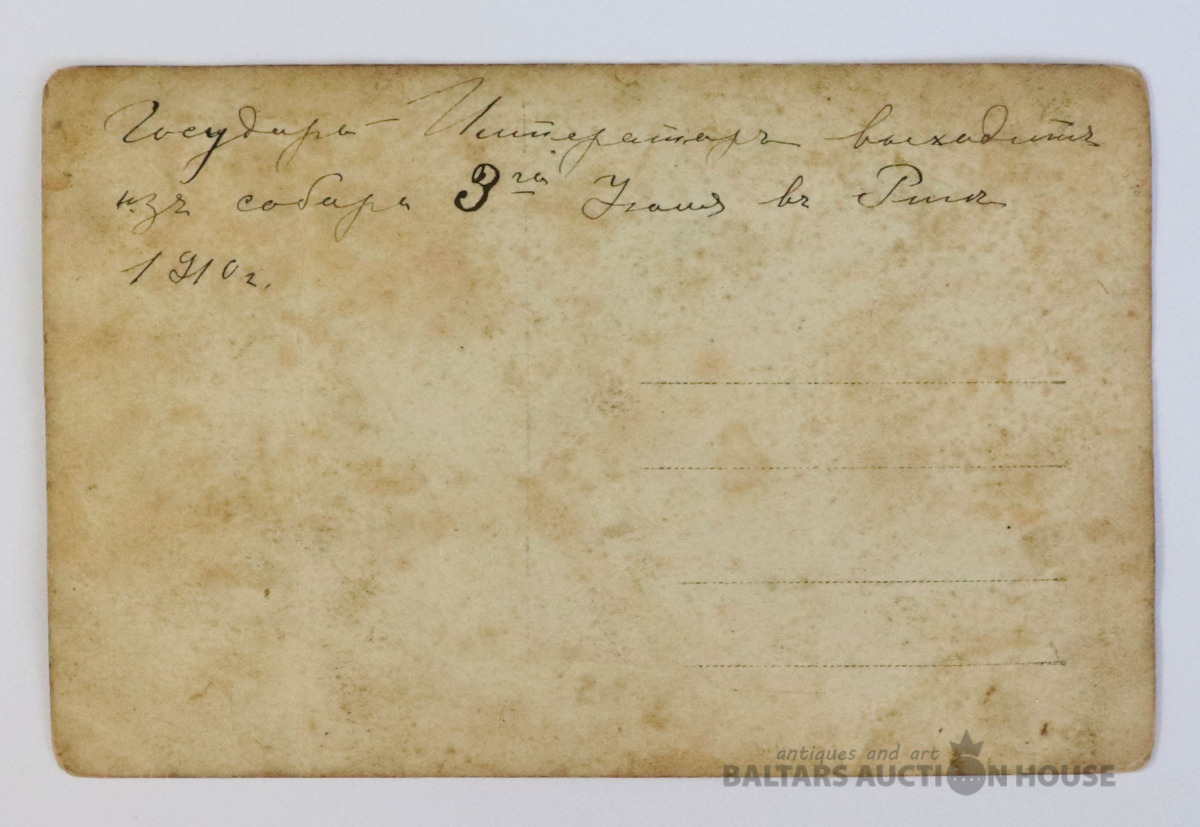 Государь - Императоръ выходитъ
изъ собора 3го Июля въ Ригѣ
1910 г.
antiques and art
BALTARS AUCTION HOUSE